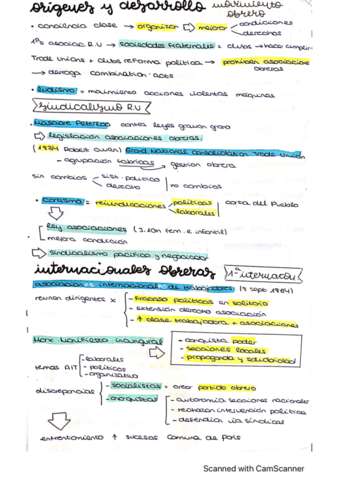 orígenes y desarrollo movimiento obrero
• conciencia clase → organizar ⇒ mejora condiciones
derechos
1ºs asociac R.U → sociedades fraternales = clubs →
Trade Unions + clubs reforma política → prohíben asociación obreras
→ deroga combination acts
• Ludismo = movimiento acciones violentas máquinas
Sindicalismo R.U
• Masacre Peterloo contra leyes grano
⇒ legislación asociaciones obreras
(1834 Robert Owen) Grand National Consolidation Trade Union
- agrupación fábricas gestión obrera
sin cambios sist. político
derecho no cambios
• Cartismo = reivindicaciones políticas carta del Pueblo
laborales
ley asociaciones (J. 10h fem. e infantil)
mejora condición
⇒ sindicalismo pacífico y negociador
internacionales obreras 1ª internacion
asociación internacional de trabajadores (9 sept 1864)
reunían dirigentes x - fracaso políticas en solitario
- extensión derecho asociación
- ↑ clase trabajadora + asociaciones
Marx Manifiesto inaugural - conquista poder
- secciones locales
- propaganda y solidaridad
temas AIT - laborales
- políticos
- organizativo
discrepancias - socialistas = crear partido obrero
- anarquistas - autonomía secciones nacionales
- rechazan intervención política
- defendían vía sindical
enfrentamiento ↑ sucesos Comuna de París
Scanned with CamScanner